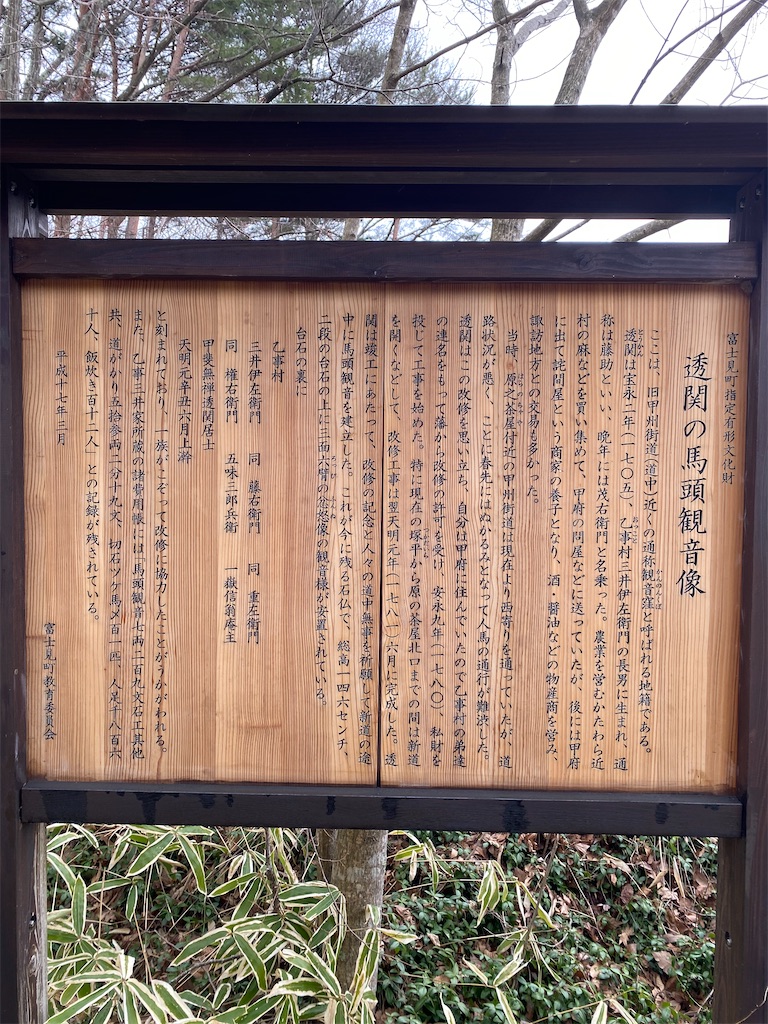 富士見町指定有形文化財
透関の馬頭観音像
ここは、旧甲州街道(道中)近くの通称観音窪と呼ばれる地籍である。
透関は宝永二年(一七〇五)、乙事村三井伊左衛門の長男に生まれ、通
称は藤助といい、晩年には茂右衛門と名乗った。農業を営むかたわら近
村の麻などを買い集めて、甲府の問屋などに送っていたが、後には甲府
に出て詫間屋という商家の養子となり、酒・醤油などの物産商を営み、
諏訪地方との交易も多かった。
当時、原之茶屋付近の甲州街道は現在より西寄りを通っていたが、道
路状況が悪く、ことに春先にはぬかるみとなって人馬の通行が難渋した。
透関はこの改修を思い立ち、自分は甲府に住んでいたので乙事村の弟達
の連名をもって藩から改修の許可を受け、安永九年(一七八〇)、私財を
投じて工事を始めた。特に現在の塚平から原の茶屋北口までの間は新道
を開くなどして、改修工事は翌天明元年(一七八一)六月に完成した。透
関は竣工にあたって、改修の記念と人々の道中無事を祈願して新道の途
中に馬頭観音を建立した。これが今に残る石仏で、総高一四六センチ、
二段の台石の上に三面六臂の忿怒像の観音様が安置されている。
台石の裏に
乙事村
三井伊左衛門　同　藤右衛門　同　重左衛門
同　権右衛門　五味三郎兵衛　一嶽信翁庵主
甲斐無禅透関居士
天明元辛丑六月上澣
と刻まれており、一族がこぞって改修に協力したことがうかがわれる。
また、乙事三井家所蔵の諸費用帳には「馬頭観音七両二百九文石工其他
共、道がかり五拾参両二分十九文、切石ツケ馬〆百一匹、人足千八百六
十人、飯炊き百十二人」との記録が残されている。
平成十七年三月
富士見町教育委員会